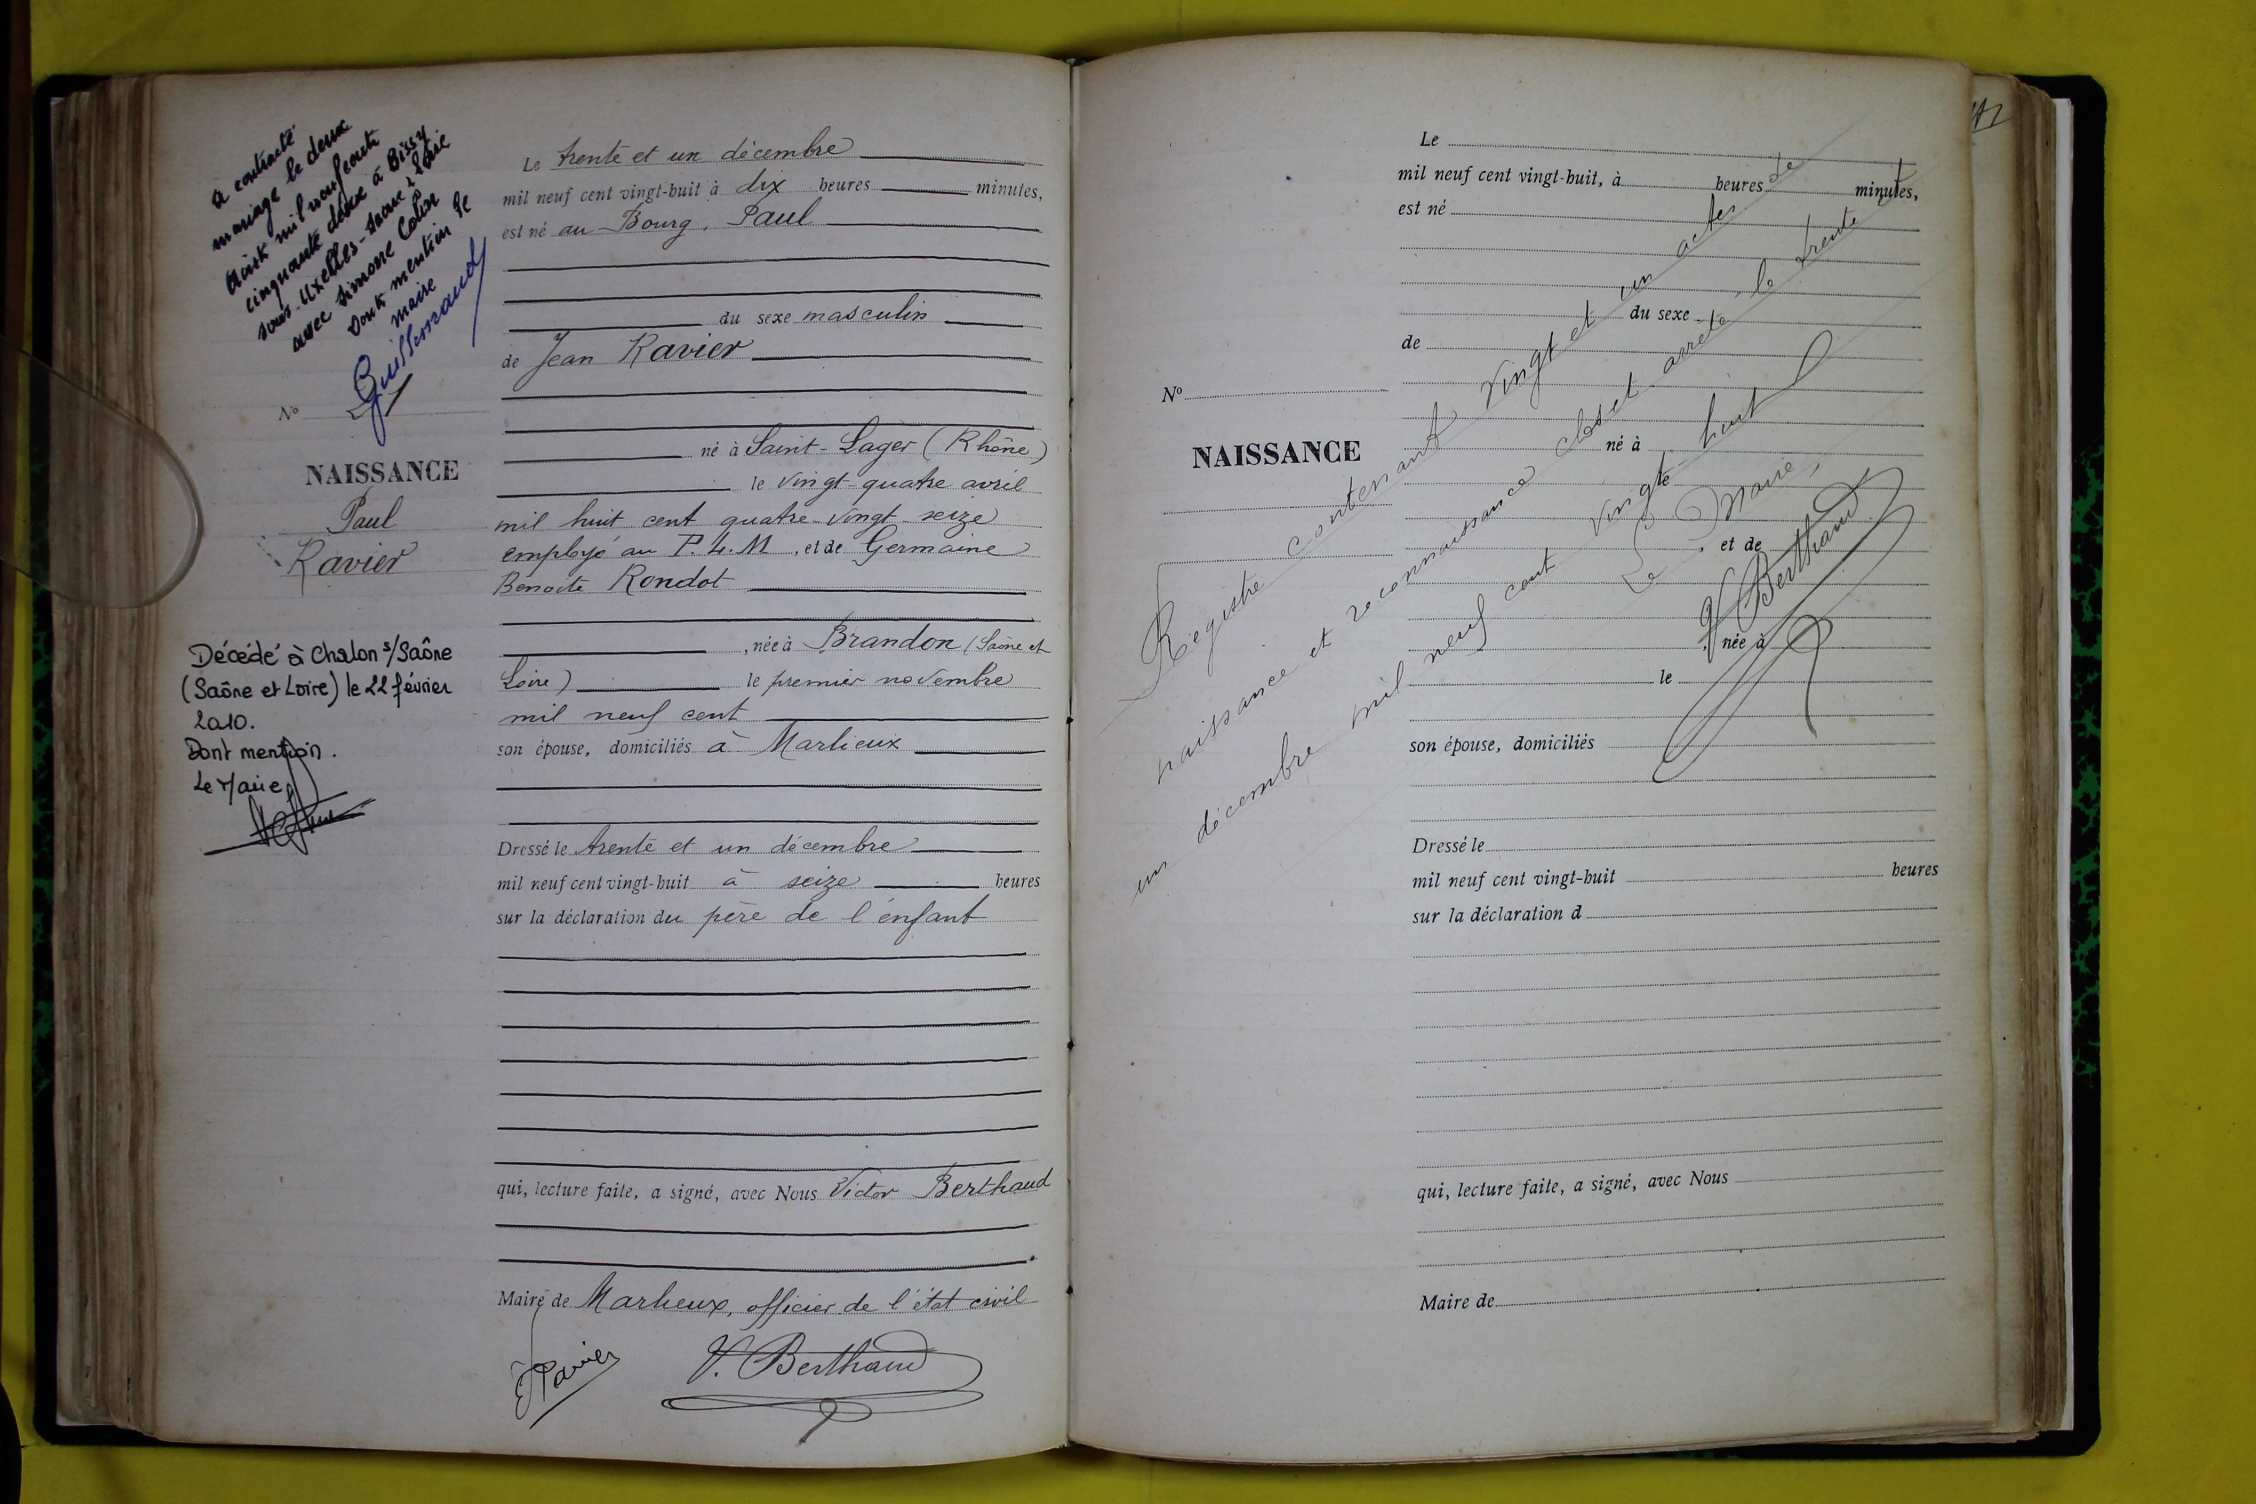 a contracté
mariage le deux
août mil neuf cent
cinquante deux à Bissy
sous-Uxelles-Saône & Loire
avec Simone Colin
Dont mention le
maire
Guillemaud
N°
NAISSANCE
Paul
Ravier
Décédé à Chalon s/Saône
(Saône et Loire) le 22 février
2010.
Dont mention.
Le Maire
Le trente et un décembre
mil neuf cent vingt-huit à dix heures minutes,
est né au Bourg, Paul
du sexe masculin
de Jean Ravier
né à Saint-Lager (Rhône)
le vingt-quatre avril
mil huit cent quatre-vingt-seize
employé au P.L.M, et de Germaine
Benoite Rondot
, née à Brandon (Saône et
Loire) le premier novembre
mil neuf cent
son épouse, domiciliés à Marlieux
Dressé le trente et un décembre
mil neuf cent vingt-huit à seize heures
sur la déclaration du père de l'enfant
qui, lecture faite, a signé, avec Nous Victor Berthaud
Maire de Marlieux, officier de l'état civil
Ravier
V. Berthaud
Le
mil neuf cent vingt-huit, à heures minutes,
est né
du sexe
de
N°
NAISSANCE
né à
, et de
, née à
le
son épouse, domiciliés
Dressé le
mil neuf cent vingt-huit heures
sur la déclaration d
qui, lecture faite, a signé, avec Nous
Maire de
Registre contenant vingt et un actes de
naissance et reconnaissance clos et arrêté, le trente
un décembre mil neuf cent vingt huit
Le Maire,
V Berthaud